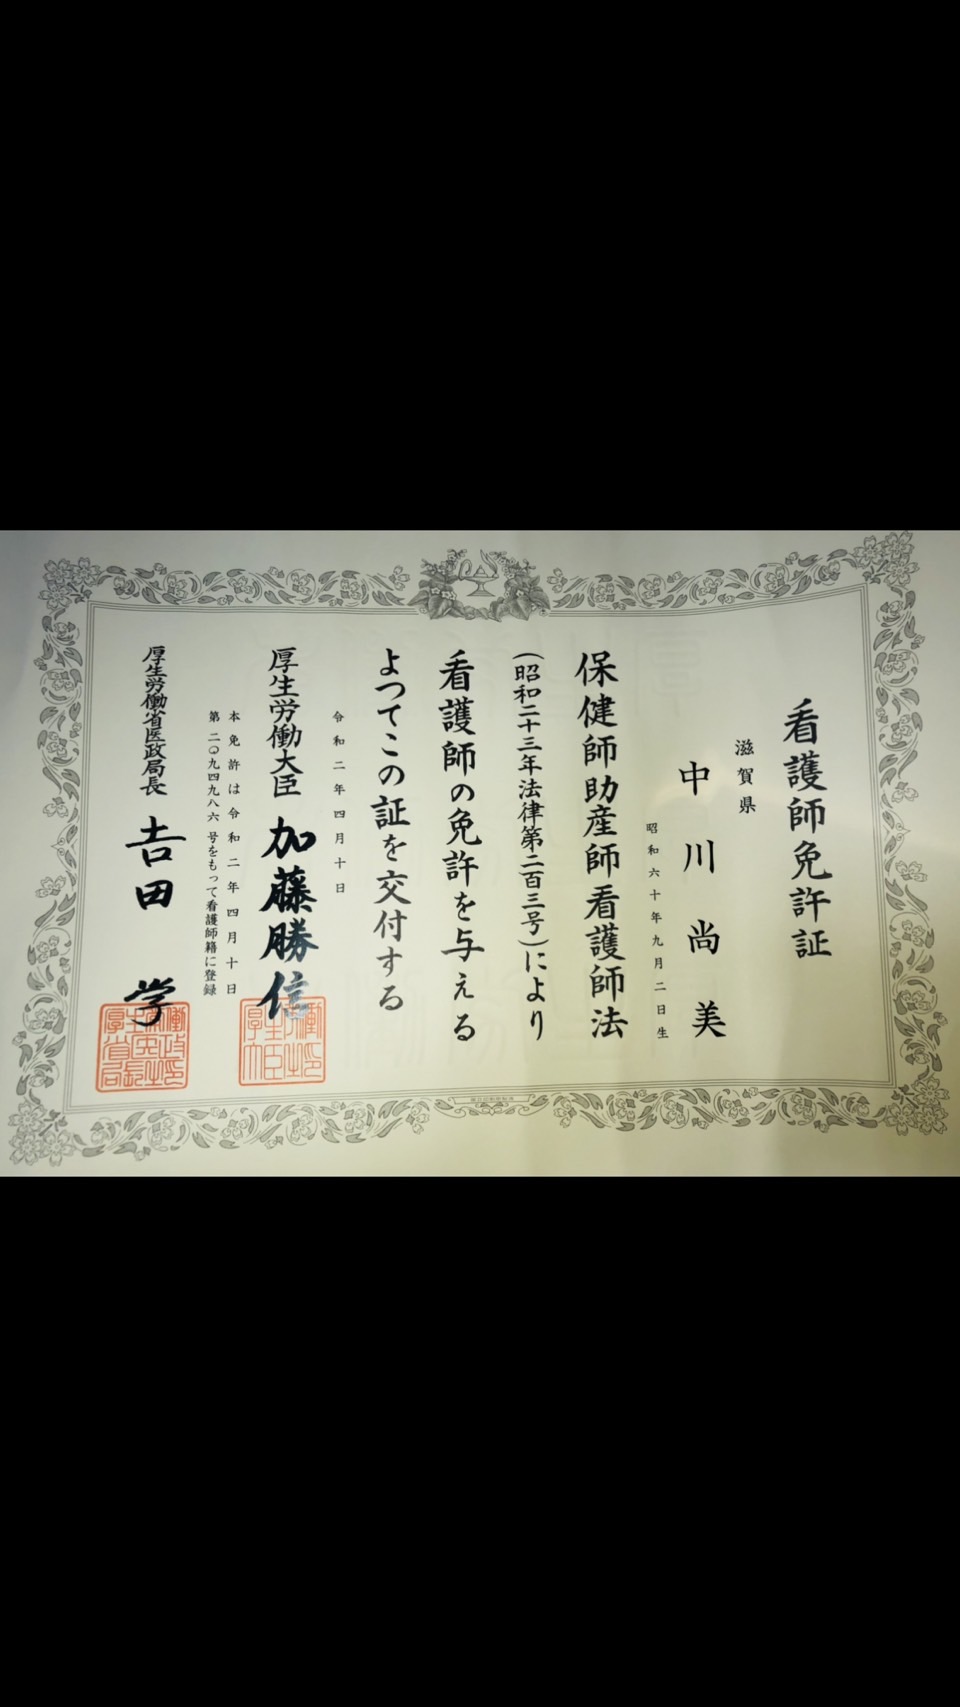 看護師免許証
滋賀県
中川尚美
昭和六十年九月二日生
保健師助産師看護師法
(昭和二十三年法律第二百三号)により
看護師の免許を与える
よつてこの証を交付する
令和二年四月十日
厚生労働大臣 加藤勝信
本免許は令和二年四月十日
第二〇九四九八六号をもって看護師籍に登録
厚生労働省医政局長 吉田 学